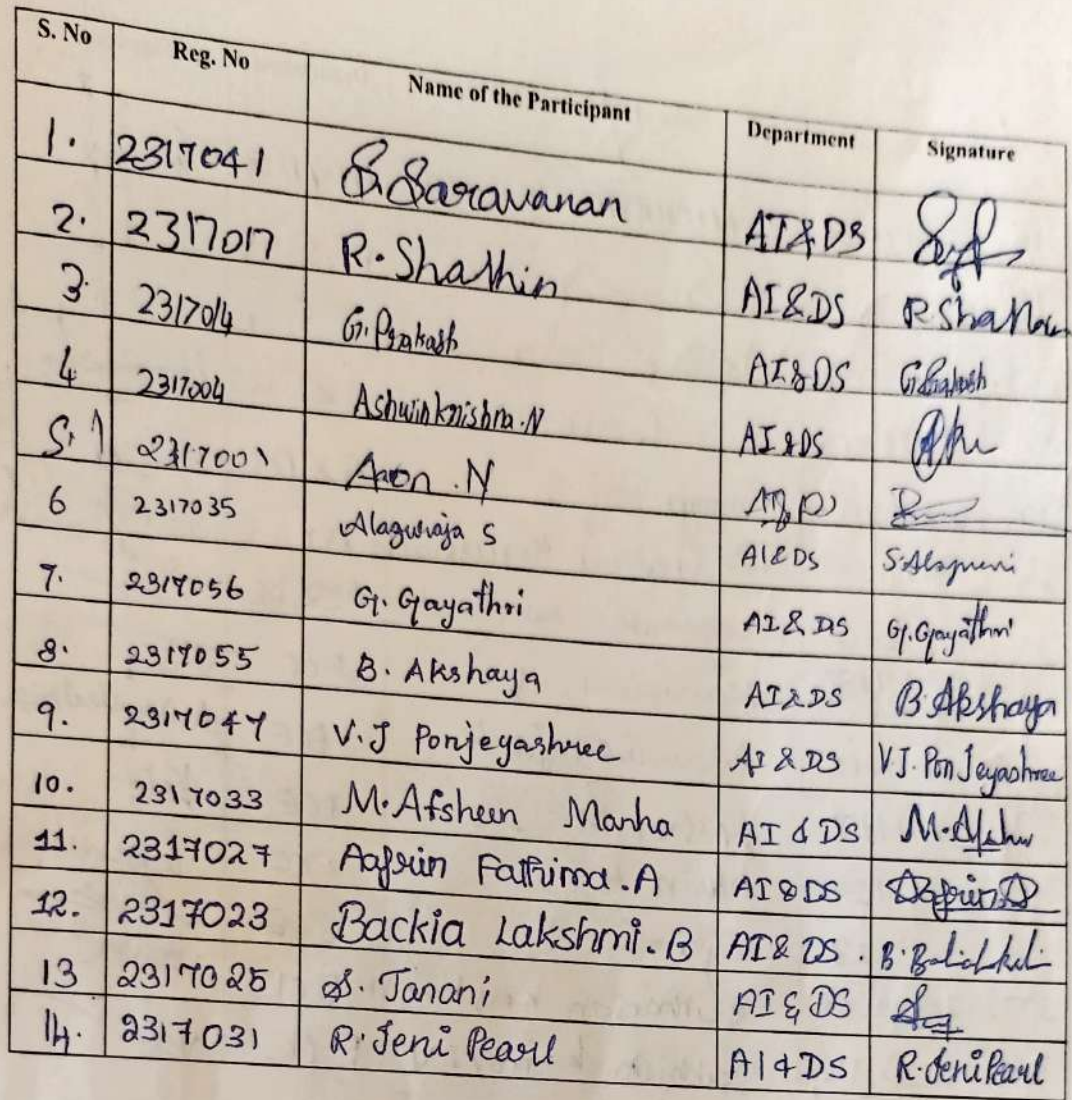 S. No Reg. No Name of the Participant Department Signature
1. 2317041 S. Saravanan AI&DS
2. 2317017 R. Shathin AI&DS R Shathin
3. 2317014 G. Prakash AI&DS G. Prakash
4 2317004 Ashwinkrishna.N AI&DS
5. 2317001 Aaron .N
6 2317035 Alaguraja S AI&DS
7. 2317056 G. Gayathri AI & DS G. Gayathri
8. 2317055 B. Akshaya AI&DS B. Akshaya
9. 2317047 V.J Ponjeyashree AI & DS V J. Pon Jeyashree
10. 2317033 M. Afsheen Manha AI & DS
11. 2317027 Aafrin Fathima.A AI & DS Aafrin A
12. 2317023 Backia Lakshmi.B AI & DS.
13 2317025 S. Janani AI & DS
14. 2317031 R. Jeni Pearl AI & DS R. Jeni Pearl